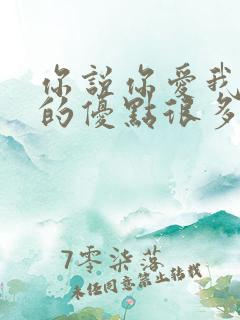 你說你愛我
的優點很多
7零柒落
未任同意禁止转载